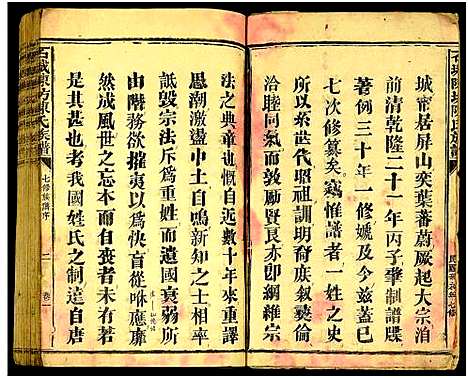 城帝居屏山奕葉蕃蔚厥起大宗洎
前清乾隆二十一年丙子肇制譜牒
著例三十年一修嬔及今兹蓋已
七次修篹矣竊惟譜者一姓之史
所以系世代昭祖訓明裔族叙彝倫
洽睦同氣而敦勵賢良亦卽綱維宗
法之典章也慨自近數十年來重譯
思潮激盪中土自鳴新知之士相率
詆毀宗法斥爲重姓而遺國衰弱所
由階務欲摧夷以爲快盲從咻應靡
然成風世之忘本者未有若
是其甚也考我國姓氏之制遠自唐
石城陳坊陳氏族譜
七修族譜序
二
卷一
石城陳坊陳氏族譜